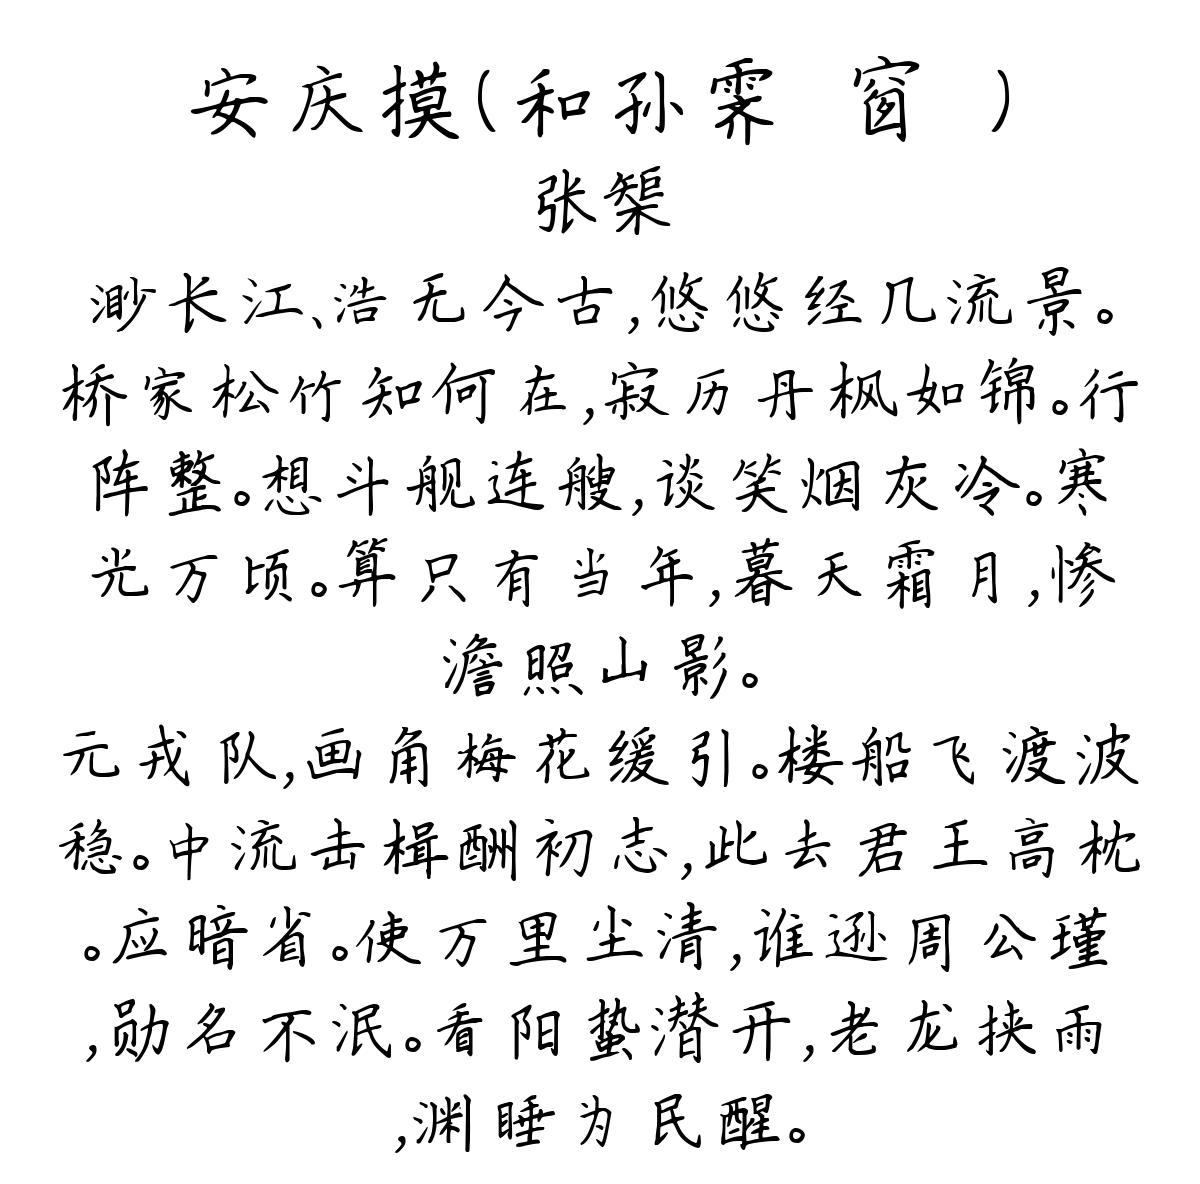 安庆摸(和孙霁 窗 )
张榘
渺长江、浩无今古,悠悠经几流景。
桥家松竹知何在,寂历丹枫如锦。行
阵整。想斗舰连艘,谈笑烟灰冷。寒
光万顷。算只有当年,暮天霜月,惨
澹照山影。
元戎队,画角梅花缓引。楼船飞渡波
稳。中流击楫酬初志,此去君王高枕
。应暗省。使万里尘清,谁逊周公瑾
,勋名不泯。看阳蛰潜开,老龙挟雨
,渊睡为民醒。